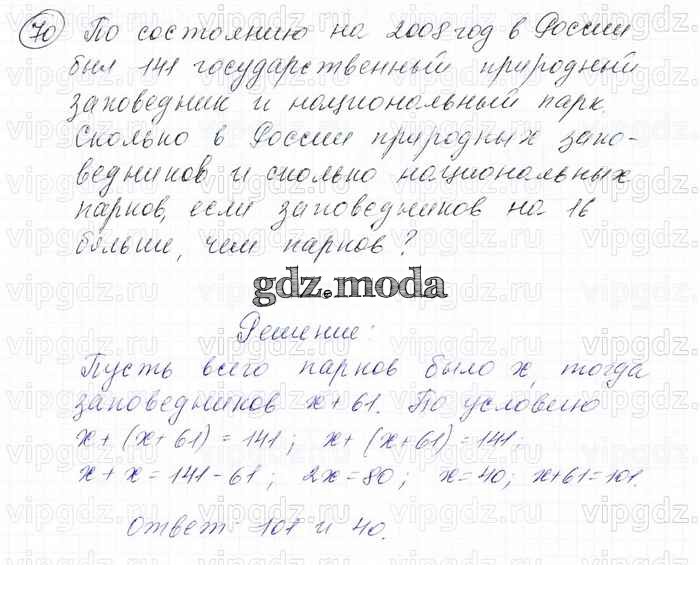 70 По состоянию на 2008 год в России
был 141 государственный природный
заповедник и национальный парк.
Сколько в России природных запо-
ведников и сколько национальных
парков, если заповедников на 16
больше, чем парков?
gdz.moda
Решение:
Пусть всего парков было x, тогда
заповедников x+61. По условию
x+(x+61)=141; x+(x+61)=141;
x+x=141-61; 2x=80; x=40; x+61=101.
Ответ: 101 и 40.